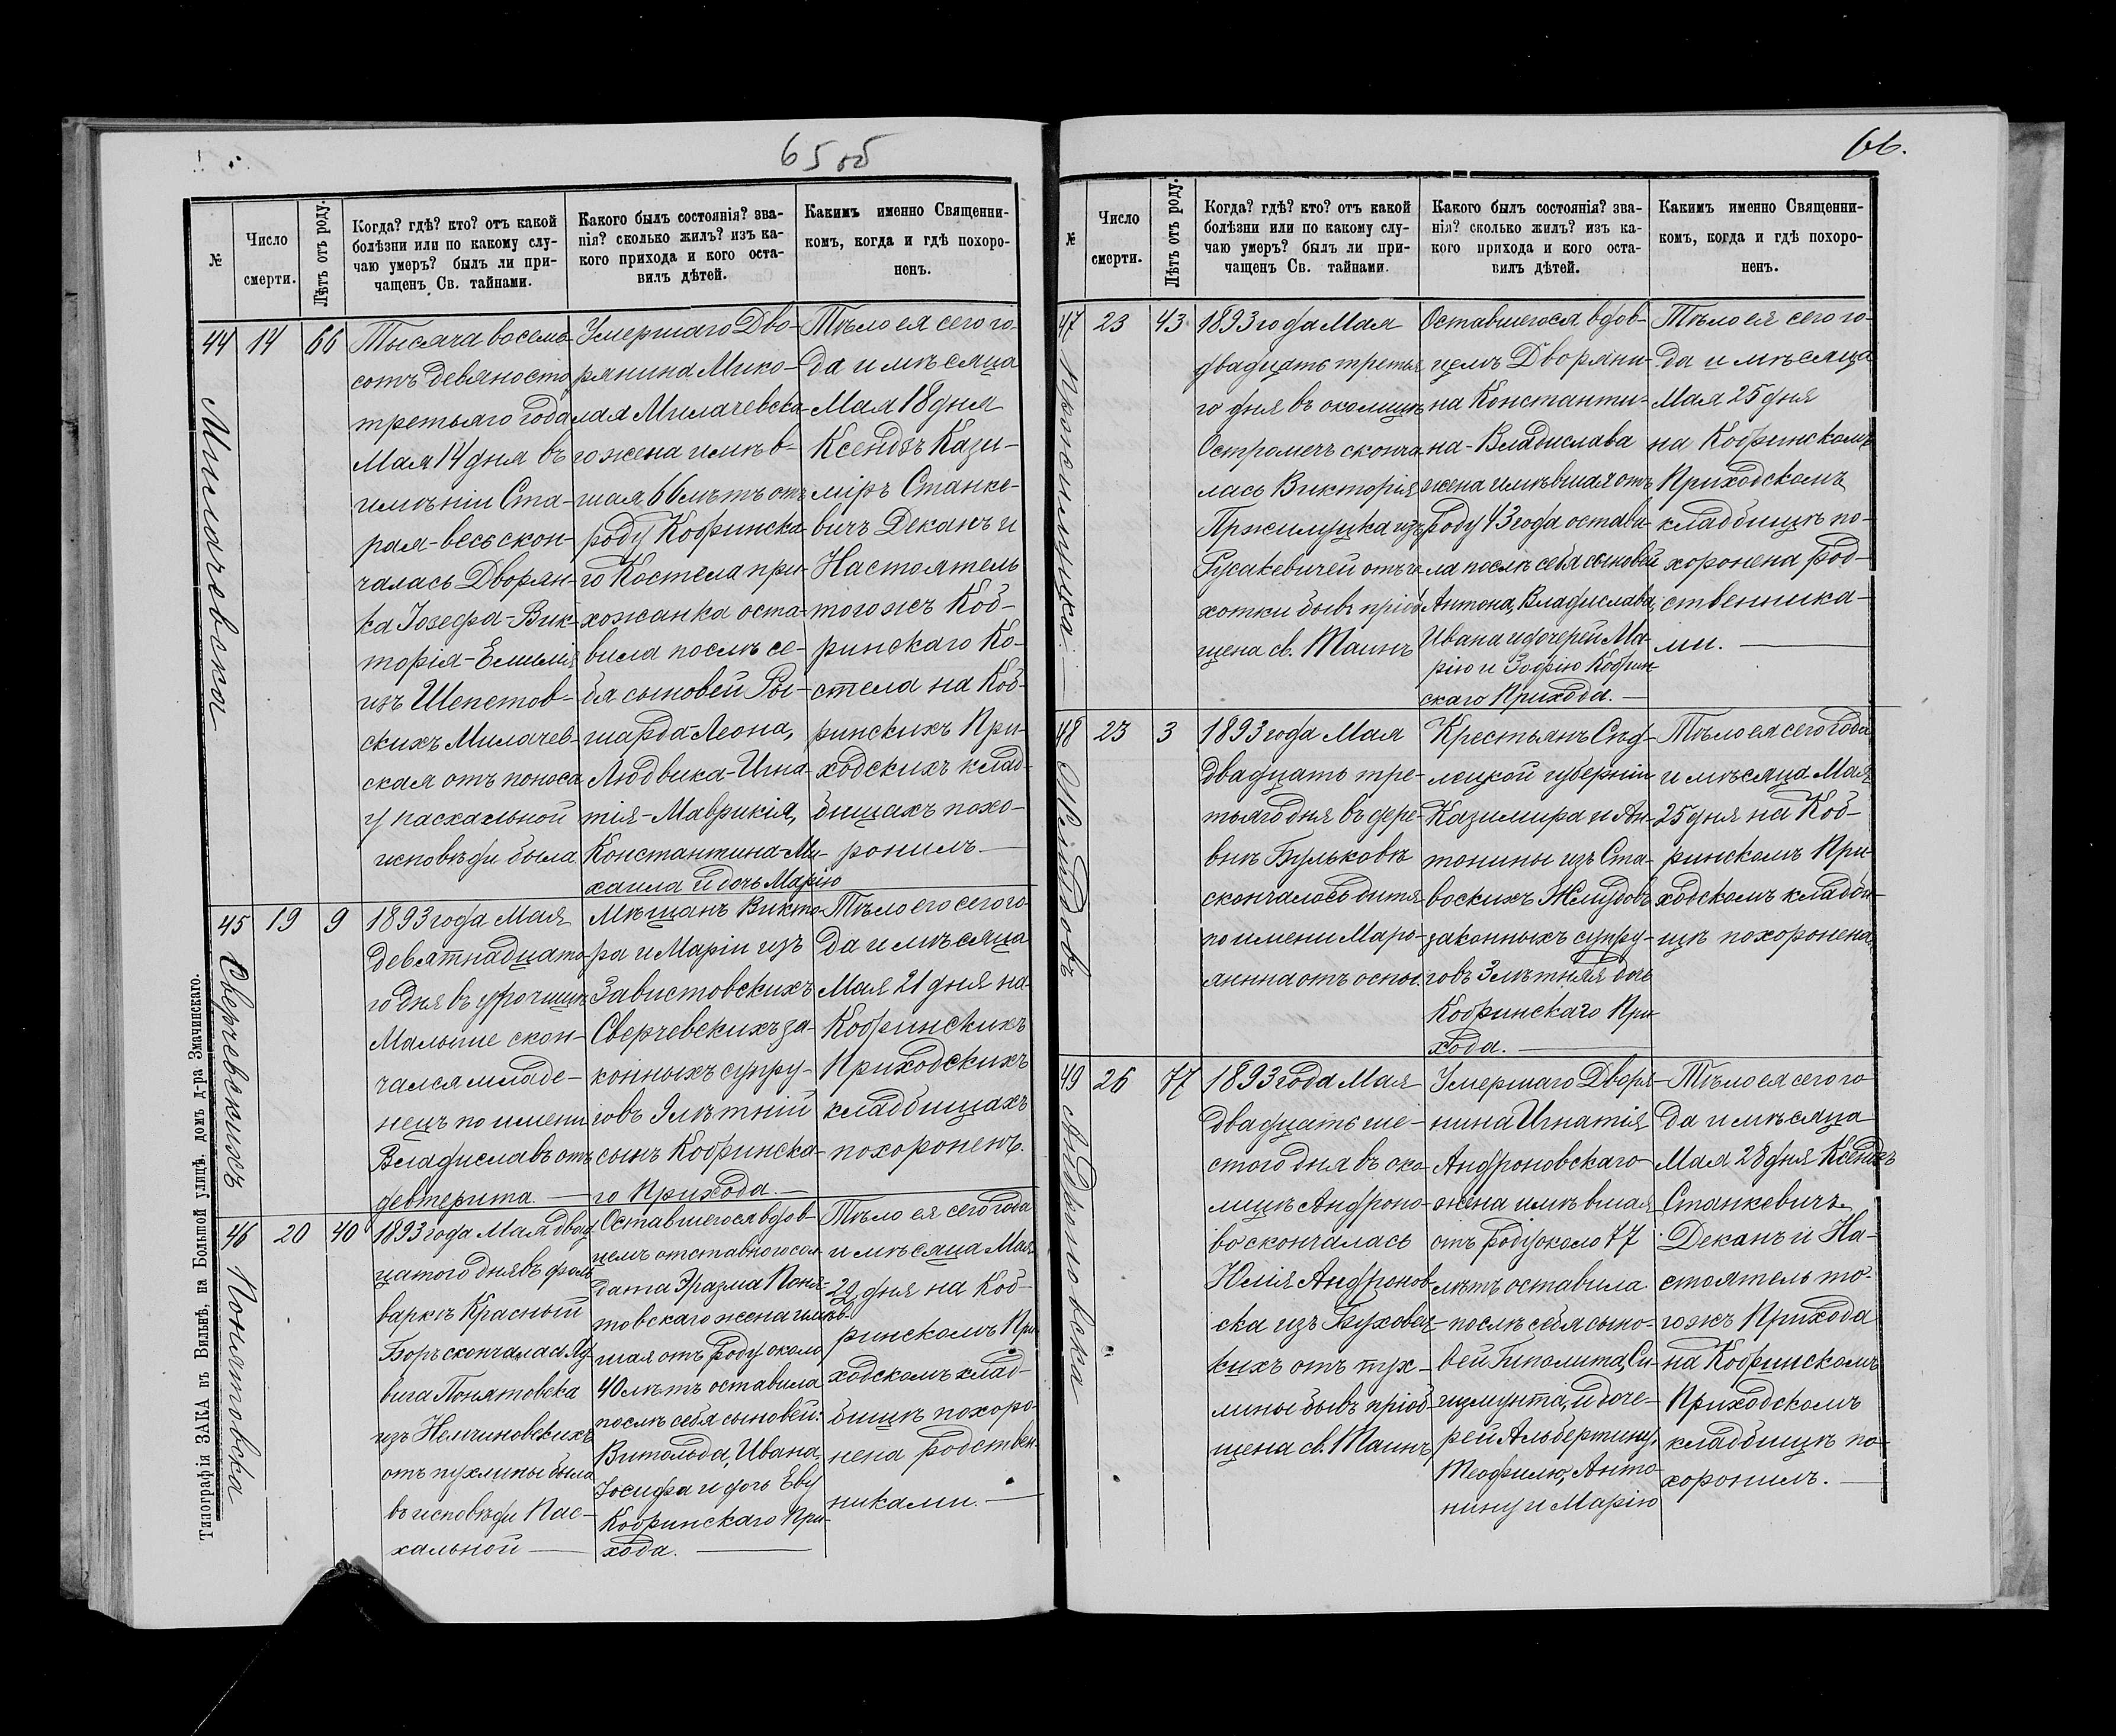 65 об
№
Число
смерти.
Лѣтъ отъ роду.
Когда? гдѣ? кто? отъ какой
болѣзни или по какому слу-
чаю умеръ? былъ ли при-
чащенъ Св. тайнами.
Какого былъ состоянія? зва-
нія? сколько жилъ? изъ ка-
кого прихода и кого оста-
вилъ дѣтей.
Какимъ именно Священни-
комъ, когда и гдѣ похоро-
ненъ.
44
14
66
Милачевска
Тысяча восемь
сотъ девяносто
третьяго года
Мая 14 дня въ
имѣніи Ста-
рая-весь скон-
чалась Дворян-
ка Іозефа-Вик-
торія-Емилія
изъ Шепетов-
скихъ Милачев-
ская отъ поноса
у пасхальной
исповѣди была
Умершаго Дво-
рянина Мико-
лая Милачевска-
го жена имѣв-
шая 66 лѣтъ отъ
роду Кобринска-
го Костела при-
хожанка оста-
вила послѣ се-
бя сыновей Ры-
шарда-Леона,
Людвика-Игна-
тія-Маврикія,
Константина-Ми-
хаила и дочь Марію
Тѣло ея сего го-
да и мѣсяца
Мая 18 дня
Ксендзъ Кази-
міръ Станке-
вичъ Деканъ и
Настоятель
того жъ Коб-
ринскаго Ко-
стела на Коб-
ринскихъ При-
ходскихъ клад-
бищахъ похо-
ронилъ. —
45
19
9
Сверчевскихъ
1893 года Мая
девятнадцато-
го дня въ урочищѣ
Малыше скон-
чался младе-
нецъ по имени
Владиславъ отъ
девтерита. —
Мѣщанъ Викто-
ра и Маріи изъ
Завистовскихъ
Сверчевскихъ за-
конныхъ супру-
говъ 9 лѣтній
сынъ Кобринска-
го Прихода. —
Тѣло его сего го-
да и мѣсяца
Мая 21 дня на
Кобринскихъ
Приходскихъ
кладбищахъ
похороненъ.
46
20
40
Понятовска
1893 года Мая двад-
цатого дня въ фоль-
варкѣ Красный
Боръ скончалась Яд-
вига Понятовска
изъ Немчиновскихъ
отъ пухлины была
въ исповѣди Пас-
хальной —
Оставшегося вдов-
цемъ отставного сол-
дата Эразма Поня-
товскаго жена имѣв-
шая отъ роду около
40 лѣтъ оставила
послѣ себя сыновей:
Витольда, Ивана,
Іосифа и дочь Еву
Кобринскаго При-
хода. —
Тѣло ея сего года
и мѣсяца Мая
22 дня на Коб-
ринскомъ При-
ходскомъ клад-
бищѣ похоро-
нена родствен-
никами. —
Типографія ЗАКА въ Вильнѣ, на Большой улицѣ. домъ д-ра Змачинскаго.
66.
№
Число
смерти.
Лѣтъ отъ роду.
Когда? гдѣ? кто? отъ какой
болѣзни или по какому слу-
чаю умеръ? былъ ли при-
чащенъ Св. тайнами.
Какого былъ состоянія? зва-
нія? сколько жилъ? изъ ка-
кого прихода и кого оста-
вилъ дѣтей.
Какимъ именно Священни-
комъ, когда и гдѣ похоро-
ненъ.
47
23
43
Пржилуцка. —
1893 года Мая
двадцать третья-
го дня въ околицѣ
Остромечъ сконча-
лась Викторія
Пржилуцка изъ
Русакевичей отъ че-
хотки бывъ пріоб-
щена св. Таинъ
Оставшегося вдов-
цемъ Дворяни-
на Константи-
на-Владислава
жена имѣвшая отъ
роду 43 года остави-
ла послѣ себя сыновей
Антона, Владислава,
Ивана и дочерей Ма-
рію и Зофію Кобрин-
скаго Прихода. —
Тѣло ея сего го-
да и мѣсяца
Мая 25 дня
на Кобринскомъ
Приходскомъ
кладбищѣ по-
хоронена род-
ственника-
ми. —
48
23
3
Жлудовъ
1893 года Мая
двадцать тре-
тьяго дня въ дере-
внѣ Бульковѣ
скончалось дитя
по имени Марі-
анна отъ оспы.
Крестьянъ Сѣд-
лецкой губерніи
Казимира и Ан-
тонины изъ Ста-
воскихъ Жлудовъ
законныхъ супру-
говъ 3 лѣтняя дочь
Кобринскаго При-
хода. —
Тѣло ея сего года
и мѣсяца Мая
25 дня на Коб-
ринскомъ При-
ходскомъ кладби-
щѣ похоронена.
49
26
77
Андроновска
1893 года Мая
двадцать ше-
стого дня въ око-
лицѣ Андроно-
во скончалась
Юлія Андронов-
ска изъ Буховец-
кихъ отъ пух-
лины бывъ пріоб-
щена св. Таинъ
Умершаго Дворя-
нина Игнатія
Андроновскаго
жена имѣвшая
отъ роду около 77
лѣтъ оставила
послѣ себя сыно-
вей Гиполита, Си-
гизмунта, и доче-
рей Альбертину,
Теофилю, Анто-
нину и Марію
Тѣло ея сего го-
да и мѣсяца
Мая 28 дня Ксендзъ
Станкевичъ
Деканъ и На-
стоятель то-
го жъ Прихода
на Кобринскомъ
Приходскомъ
кладбищѣ по-
хоронилъ. —